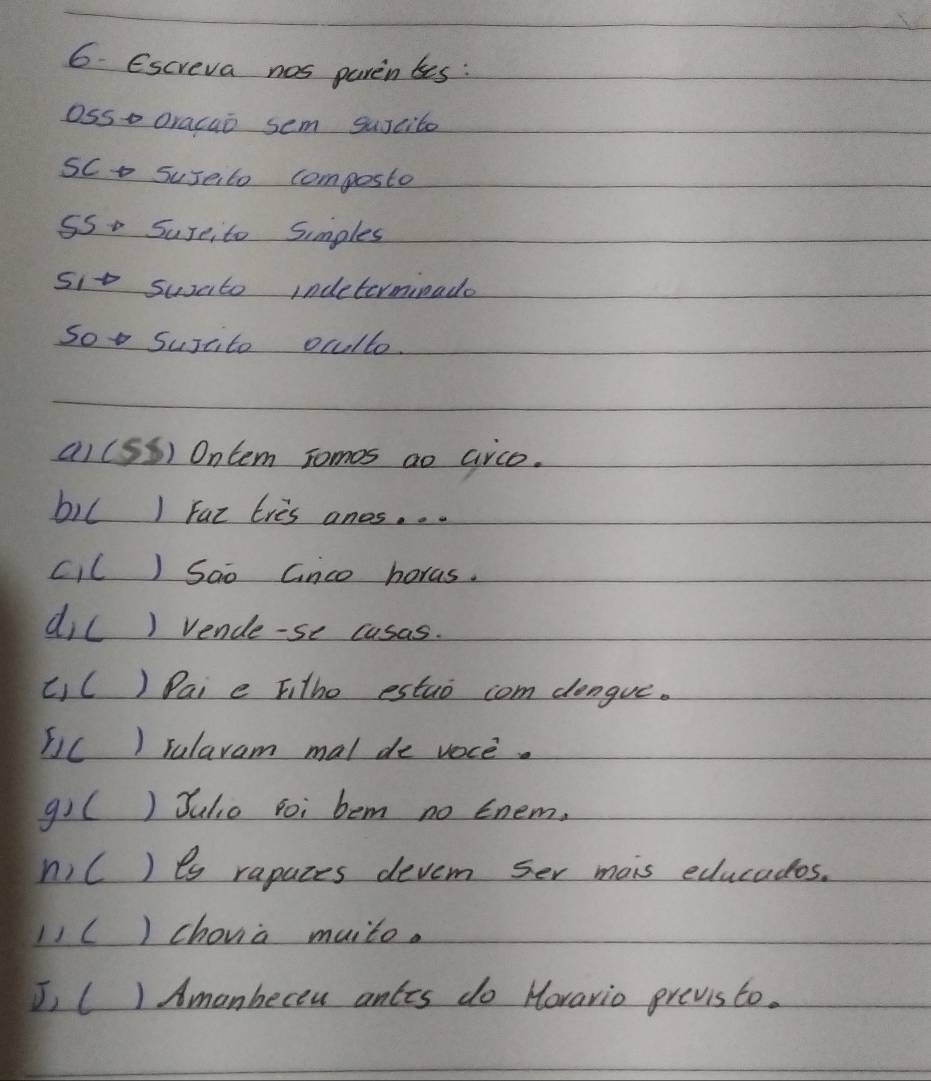 6- Escreva nos parênteses:
OSS→ oração sem sujeito
SC→ Sujeito composto
SS→ Sujeito Simples
SI→ sujeito indeterminado
SO→ Sujeito oculto.
a) (SS) Ontem fomos ao circo.
b) ( ) Faz três anos...
c) ( ) São Cinco horas.
d) ( ) vende-se casas.
e) ( ) Pai e Filho estão com dengue.
f) ( ) falaram mal de você.
g) ( ) Julio foi bem no Enem.
h) ( ) Os rapazes devem Ser mais educados.
i) ( ) chovia muito.
J) ( ) Amanheceu antes do Horario previsto.